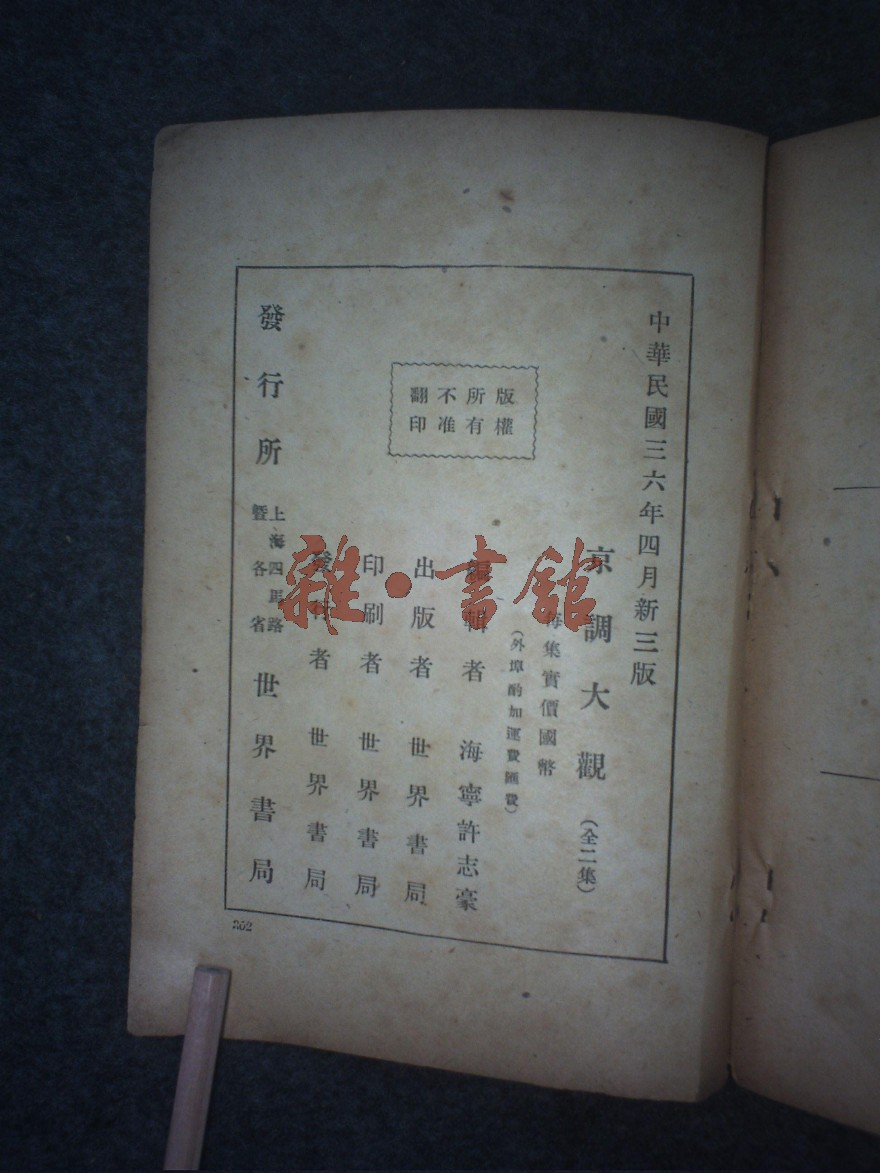 中華民國三六年四月新三版
京調大觀(全二集)
每集實價國幣
(外埠酌加運費匯費)
編輯者 海寧許志豪
出版者 世界書局
印刷者 世界書局
發行者 世界書局
發行所 上海四馬路暨各省 世界書局
版權
所有
不准
翻印
352
雜·書館